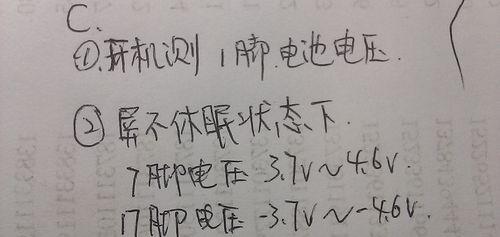 C.
①开机测1脚电池电压.
②屏不休眠状态下.
7脚电压 3.7V～4.6V.
17脚电压 -3.7V～-4.6V.